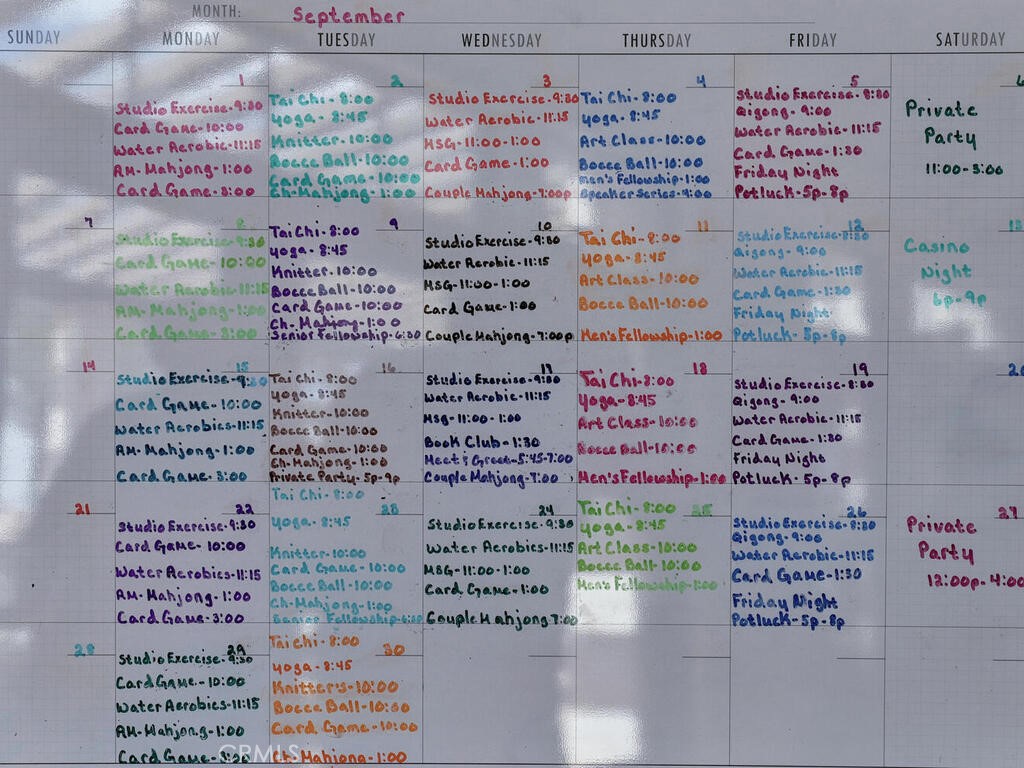 MONTH: September
SUNDAY MONDAY TUESDAY WEDNESDAY THURSDAY FRIDAY SATURDAY
1
Studio Exercise-9:30
Card Game-10:00
Water Aerobic-11:15
AM-Mahjong-1:00
Card Game-3:00
2
Tai Chi-8:00
Yoga-8:45
Knitter-10:00
Bocce Ball-10:00
Card Game-10:00
Ch-Mahjong-1:00
3
Studio Exercise-9:30
Water Aerobic-11:15
MSG-11:00-1:00
Card Game-1:00
Couple Mahjong-7:00p
4
Tai Chi-8:00
Yoga-8:45
Art Class-10:00
Bocce Ball-10:00
Men's Fellowship-1:00
Speaker Series-4:00
5
Studio Exercise-8:30
Qigong-9:00
Water Aerobic-11:15
Card Game-1:30
Friday Night
Potluck-5p-8p
6
Private
Party
11:00-3:00
7
8
Studio Exercise-9:30
Card Game-10:00
Water Aerobic-11:15
AM-Mahjong-1:00
Card Game-3:00
9
Tai Chi-8:00
Yoga-8:45
Knitter-10:00
Bocce Ball-10:00
Card Game-10:00
Ch-Mahjong-1:00
Senior Fellowship-6:30
10
Studio Exercise-9:30
Water Aerobic-11:15
MSG-11:00-1:00
Card Game-1:00
Couple Mahjong-7:00p
11
Tai Chi-8:00
Yoga-8:45
Art Class-10:00
Bocce Ball-10:00
Men's Fellowship-1:00
12
Studio Exercise-8:30
Qigong-9:00
Water Aerobic-11:15
Card Game-1:30
Friday Night
Potluck-5p-8p
13
Casino
Night
6p-9p
14
15
Studio Exercise-9:30
Card Game-10:00
Water Aerobics-11:15
AM-Mahjong-1:00
Card Game-3:00
16
Tai Chi-8:00
Yoga-8:45
Knitter-10:00
Bocce Ball-10:00
Card Game-10:00
Ch-Mahjong-1:00
Private Party-5p-9p
17
Studio Exercise-9:30
Water Aerobic-11:15
MSG-11:00-1:00
Book Club-1:30
Meet & Greet-5:45-7:00
Couple Mahjong-7:00
18
Tai Chi-8:00
Yoga-8:45
Art Class-10:00
Bocce Ball-10:00
Men's Fellowship-1:00
19
Studio Exercise-8:30
Qigong-9:00
Water Aerobic-11:15
Card Game-1:30
Friday Night
Potluck-5p-8p
20
21
22
Studio Exercise-9:30
Card Game-10:00
Water Aerobics-11:15
AM-Mahjong-1:00
Card Game-3:00
23
Tai Chi-8:00
Yoga-8:45
Knitter-10:00
Card Game-10:00
Bocce Ball-10:00
Ch-Mahjong-1:00
Senior Fellowship-6:30
24
Studio Exercise-9:30
Water Aerobics-11:15
MSG-11:00-1:00
Card Game-1:00
Couple Mahjong 7:00
25
Tai Chi-8:00
Yoga-8:45
Art Class-10:00
Bocce Ball-10:00
Men's Fellowship-1:00
26
Studio Exercise-8:30
Qigong-9:00
Water Aerobic-11:15
Card Game-1:30
Friday Night
Potluck-5p-8p
27
Private
Party
12:00p-4:00
28
29
Studio Exercise-9:30
Card Game-10:00
Water Aerobics-11:15
AM-Mahjong-1:00
Card Game-3:00
30
Tai Chi-8:00
Yoga-8:45
Knitter's-10:00
Bocce Ball-10:00
Card Game-10:00
Ch-Mahjong-1:00
CRMLS